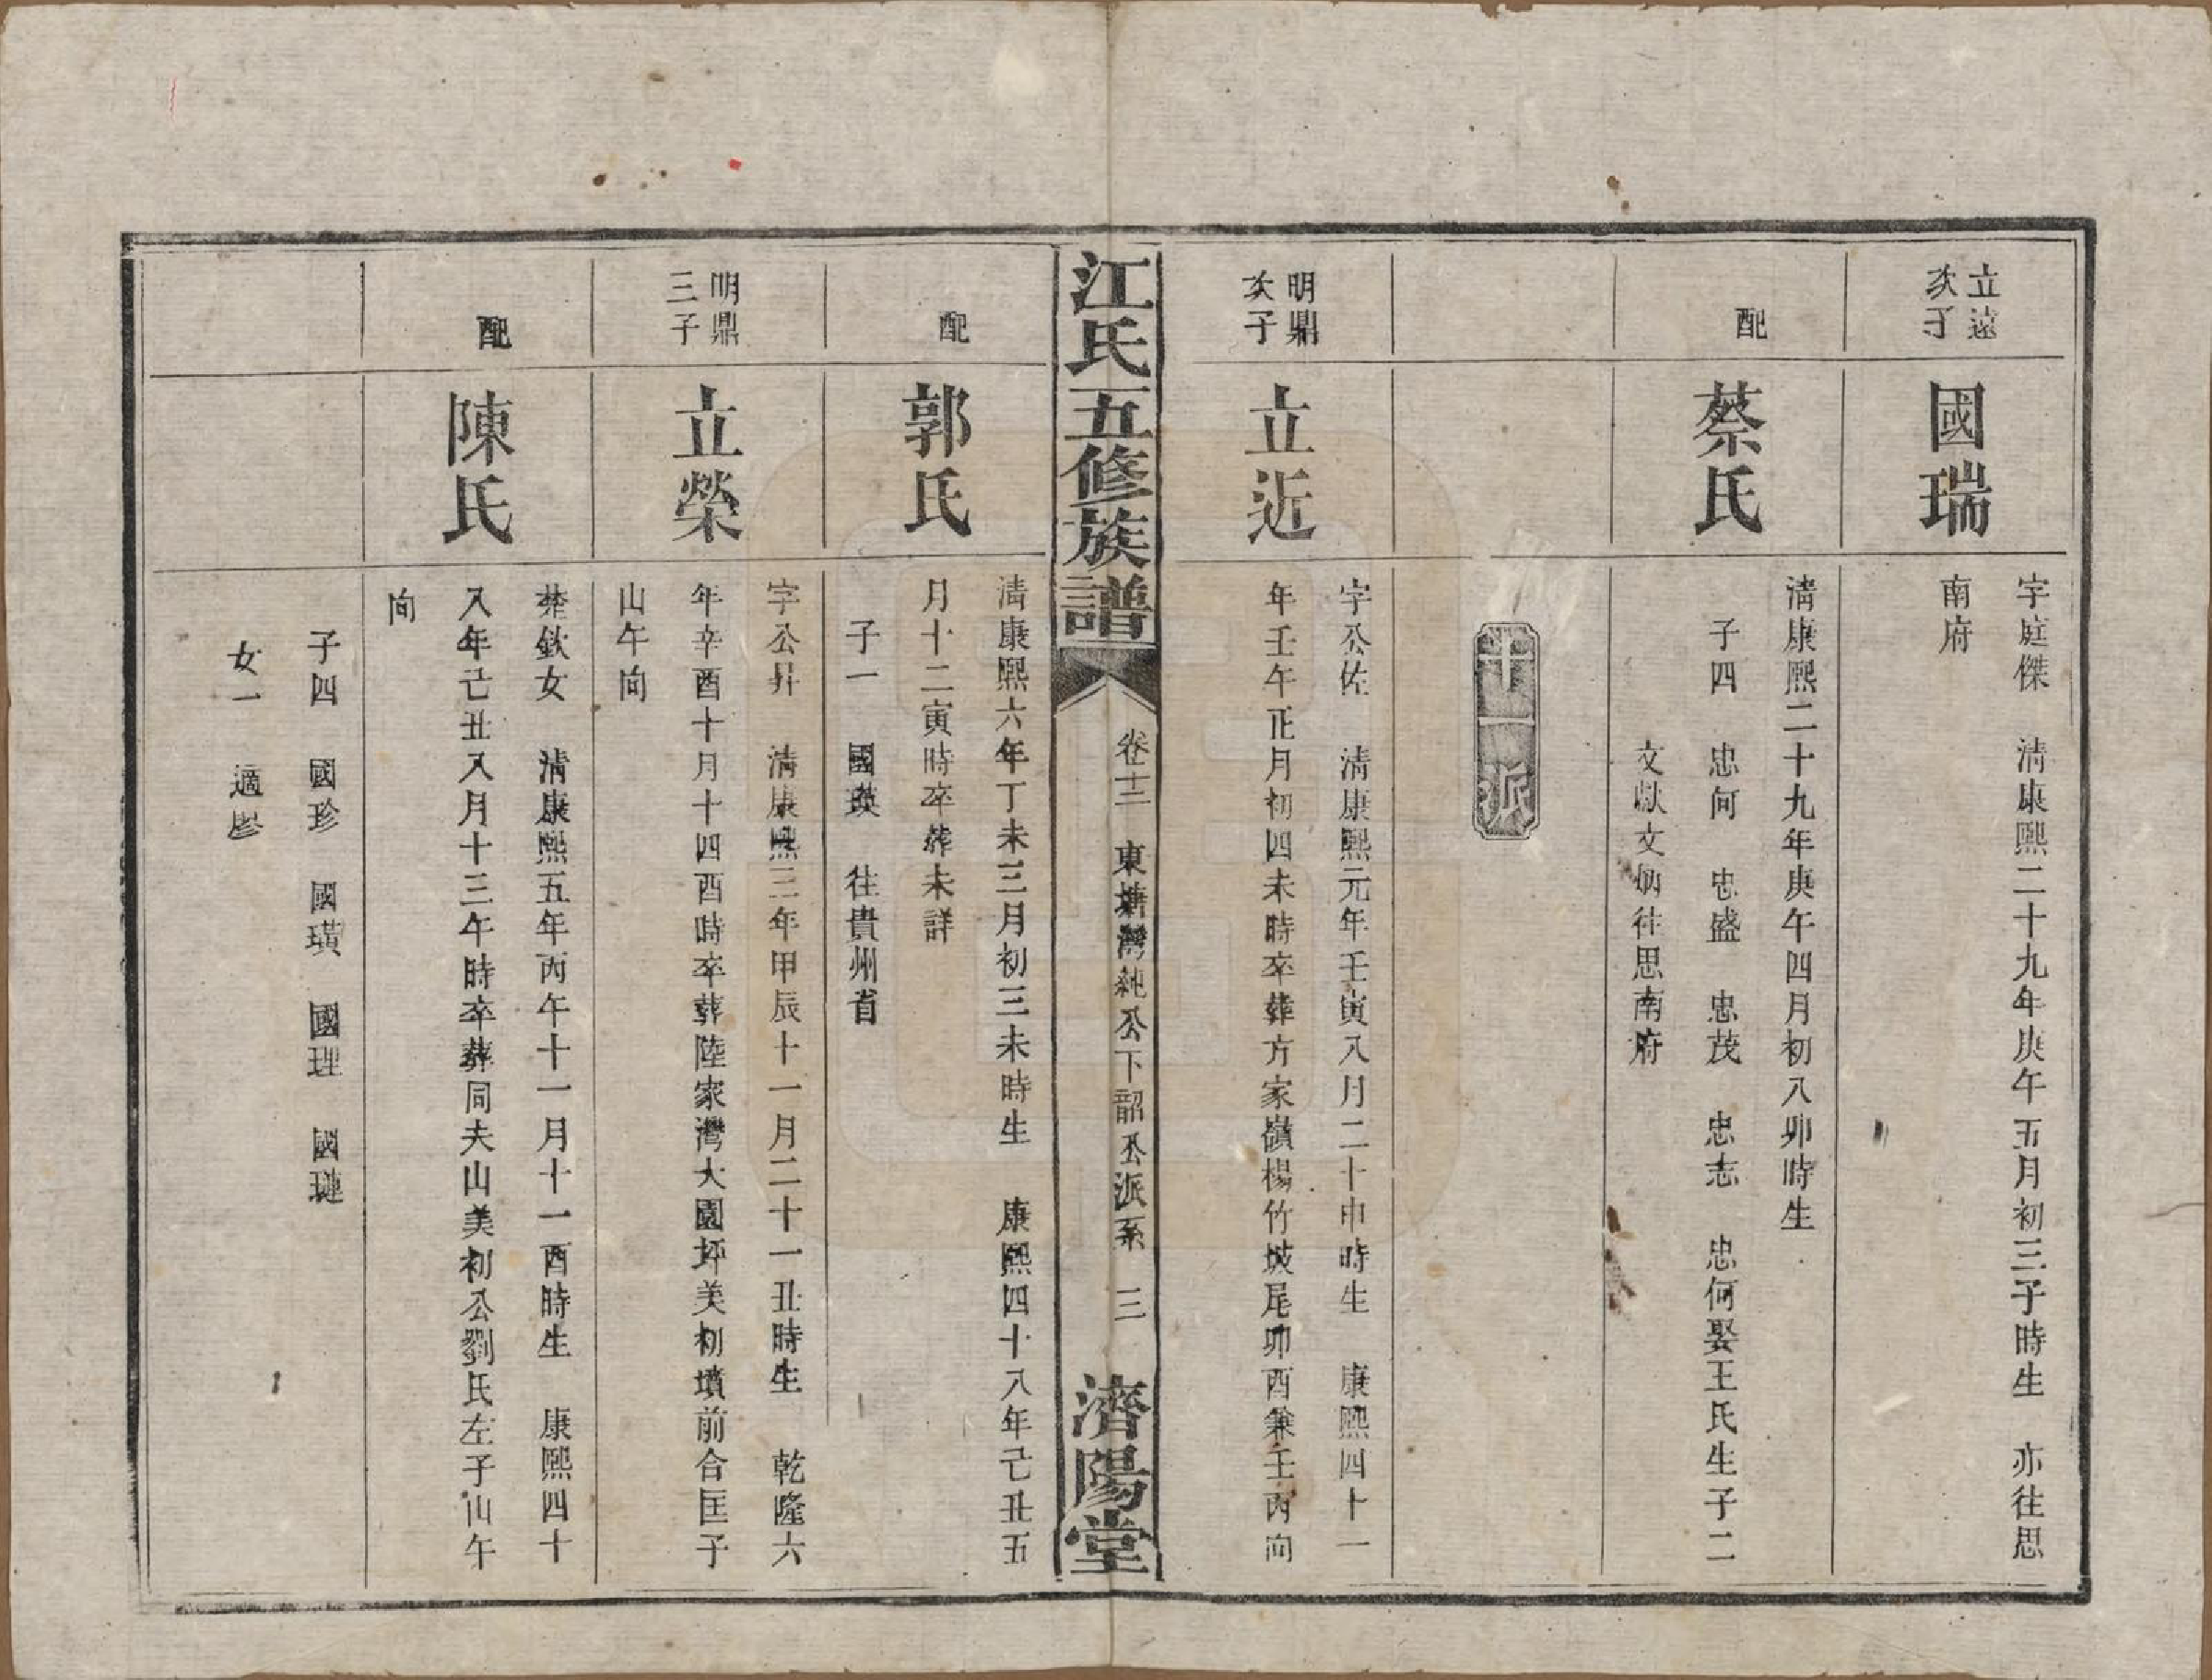 立遠
次子
國瑞
字庭傑　清康熙二十九年庚午五月初三子時生　亦往思
南府
配
蔡氏
清康熙二十九年庚午四月初八卯時生
子四　忠何　忠盛　忠茂　忠志　忠何娶王氏生子二
文猷文炳往思南府
十一派
明鼎
次子
立近
字公佐　清康熙元年壬寅八月二十申時生　康熙四十一
年壬午正月初四未時卒葬方家嶺楊竹坡尾卯酉兼壬丙向
江氏五修族譜
卷十二　東塘灣純公下韶公派系　三
濟陽堂
配
郭氏
清康熙六年丁未三月初三未時生　康熙四十八年己丑五
月十二寅時卒葬未詳
子一　國瑛　往貴州省
明鼎
三子
立榮
字公昇　清康熙三年甲辰十一月二十一丑時生　乾隆六
年辛酉十月十四酉時卒葬陸家灣大園坪美初墳前合匡子
山午向
配
陳氏
楚欽女　清康熙五年丙午十一月十一酉時生　康熙四十
八年己丑八月十三午時卒葬同夫山美初公劉氏左子山午
向
子四　國珍　國璜　國理　國璉
女一　適廖